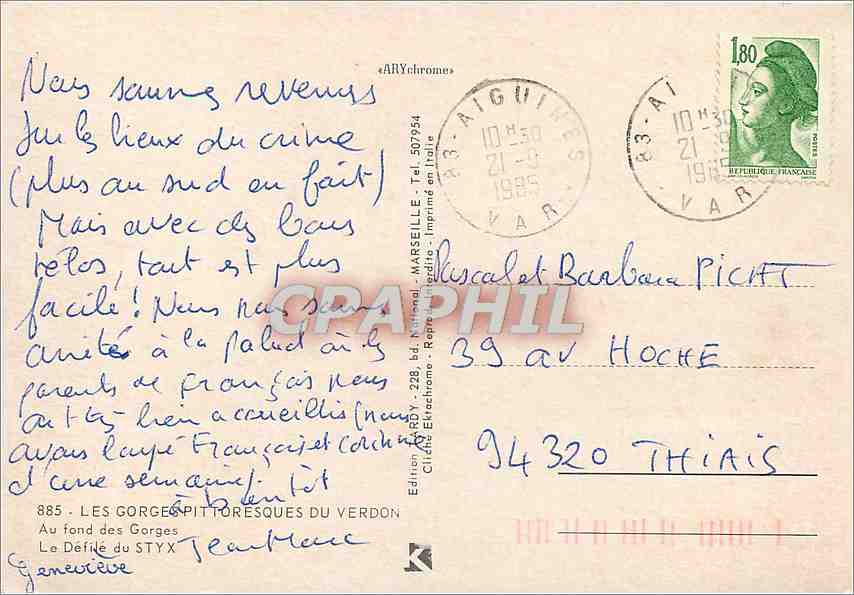 «ARYchrome»
Nous sommes revenus
sur les lieux du crime
(plus au sud en fait)
Mais avec des bons
vélos, tout est plus
facile! Nous nous sommes
arrêtés à la Palud où les
parents de François nous
ont très bien accueillis (nous
avons loupé François et Corinne
d'une semaine).
à bientôt
Jean Marc
Geneviève
885 - LES GORGES PITTORESQUES DU VERDON
Au fond des Gorges
Le Défilé du STYX
Edition GARDY - 228, bd. National - MARSEILLE - Tel. 507954
Cliché Ektachrome - Reprod. Interdite - Imprimé en Italie
K
83 - AIGUINES
10 H-30
21 -9
1985
VAR
83 - AI
10 H-30
21 -9
1985
VAR
1,80
POSTES
REPUBLIQUE FRANÇAISE
Pascal et Barbara PICHT
39 av HOCHE
94320 THIAIS
CPAPHIL